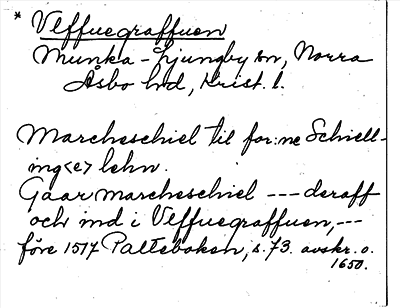 * Veffuegraffuen
Munka-Ljungby sn, Norra
Åsbo hd, Krist. l.
Marcheschiel til for:ne Schiell-
ing<e> lehn.
Gaar marcheschiel --- deraff
och ind i Veffuegraffuen, ---
före 1517 Palteboken, s. 73. avskr. o.
1650.